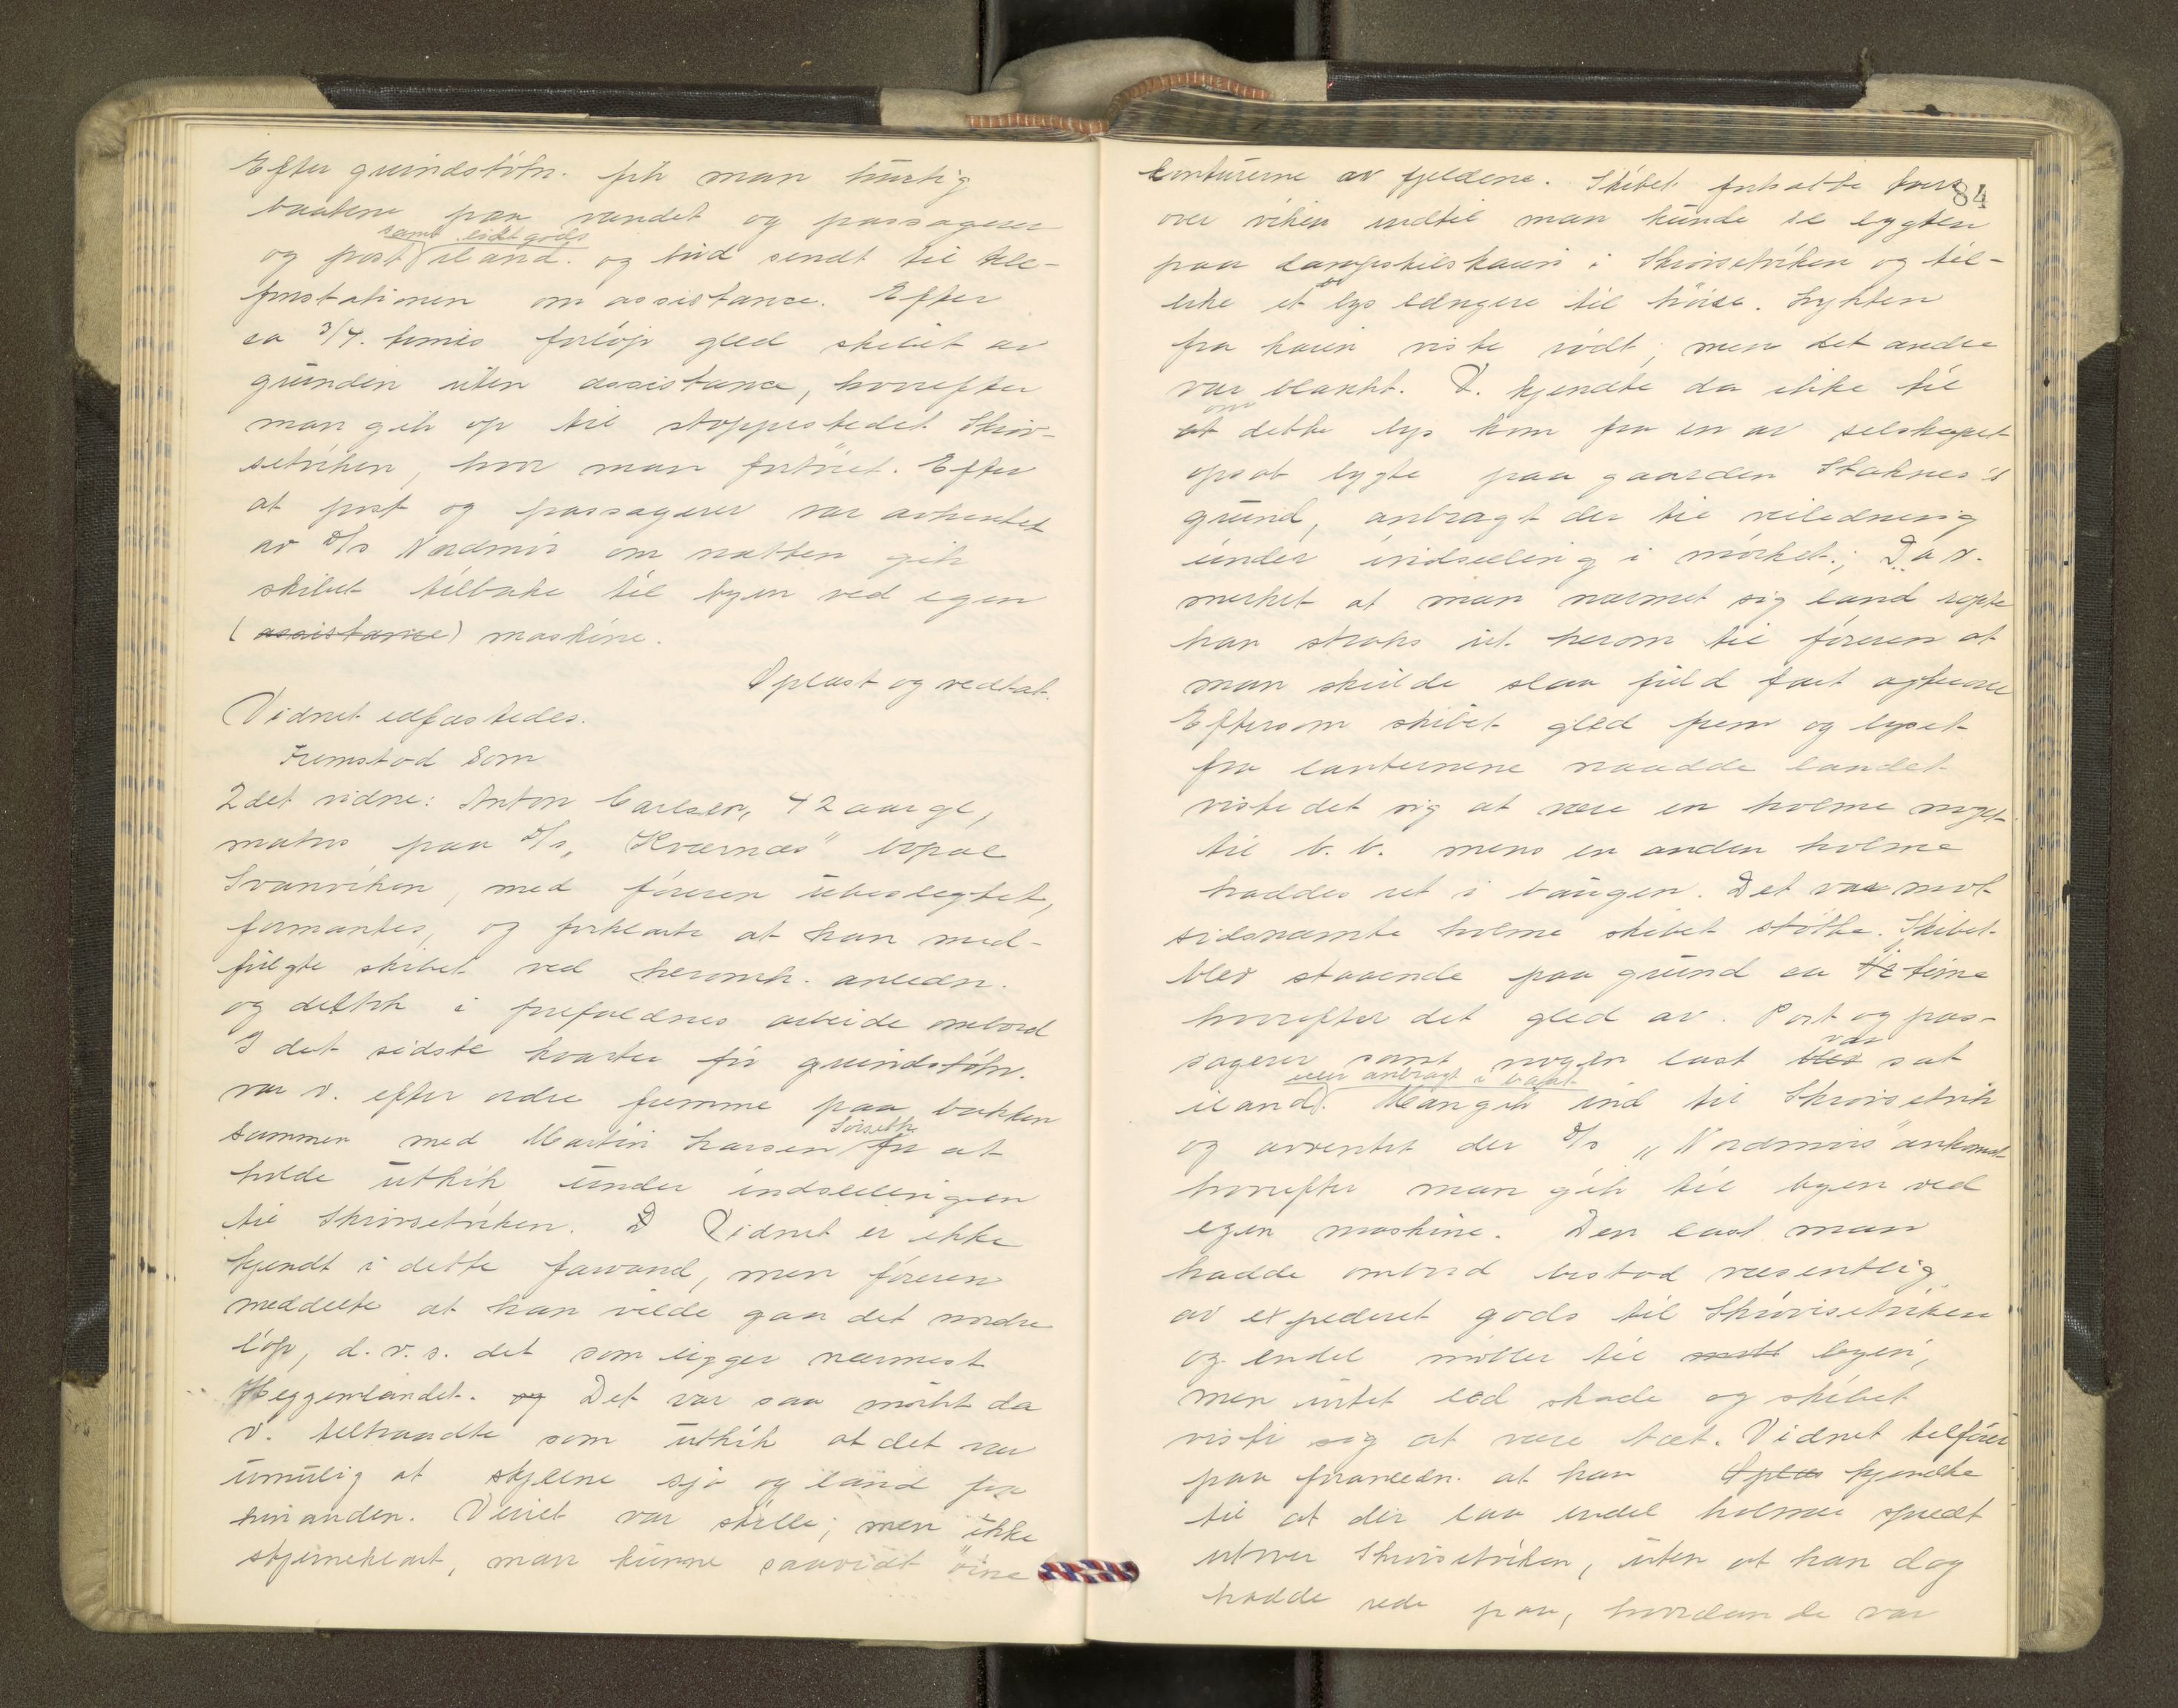 Efter grundstøtn. fik man hurtig
baatene paa vandet og passagerer
samt lidt gods
og post iland. og bud sendt til tele-
fonstationen om assistance. Efter
ca 3/4. times forløp gled skibet av
grunden uten assistance, hvorefter
man gik op til stoppestedet Skrov-
setviken, hvor man fortøiet. Efter
at post og passagerer var avhentet
av D/S Nordmør om natten gik
skibet tilbake til byen ved egen
(assistance) maskine.
Oplæst og vedtat.
Vidnet edfæstedes.
Fremstod som
2det vidne: Anton Carlsen, 42 aar gl,
matros paa D/S, "Kværnæs" bopæl
Svanviken, med føreren ubeslegtet,
formantes, og forklarte at han med-
fulgte skibet ved heromh. anledn.
og deltok i forefaldnes arbeide ombord
I det sidste kvarter før grundstøtn.
var v. efter ordre fremme paa bakken
Sørseth
sammen med Martin Larsen for at
holde utkik under indseilingen
til Skrovsetviken. D Vidnet er ikke
kjendt i dette farvand, men føreren
meddelte at han vilde gaa det nordre
løp, d.v.s. det som ligger nærmest
Heggemlandet. og Det var saa mørkt da
v. tiltraadte som utkik at det var
umulig at skjelne sjø og land fra
hinanden. Veiret var stille; men ikke
stjerneklart, man kunne saavidt øine
84
konturerne av fjeldene. Skibet fortsatte
over viken indtil man kunde se lygten
paa dampskibskaien i Skrovsetviken og til-
like et lys længere til høire. Lykten
fra kaien viste rødt; men det andre
var blankt. V. kjendte da ikke til
om
at dette lys kom fra en av selskapet
opsat lygte paa gaarden Staknes's
grund, anbragt der til veiledning
under indseiling i mørket.; Da v.
merket at man nærmet sig land ropte
han straks ut herom til føreren at
man skulde slaa fuld fart agterover
Eftersom skibet gled frem og lyset
fra lanternene naadde landet
viste det sig at være en holme noget
til b.b. mens en anden holme
haddes ret i baugen. Det var mot
sidsnævnte holme skibet støtte. Skibet
blev staaende paa grund ca time
hvorefter det gled av. Post og pas-
var
sagerer samt nogen last blev sat
eller anbragt i baat
iland. Man gik ind til Skrovsetvik
og avventet der D/S "Nordmørs" ankomst
hvorefter man gik til byen ved
egen maskine. Den last man
hadde ombord bestod væsentlig
av expederet gods til Skrovsetviken
og endel møller til byen,
men intet led skade og skibet
viste sig at være tæt. Vidnet tilføier
paa foranledn. at han Oplæs kjendte
til at der laa endel holmer spredt
utover Skrovsetviken, uten at han dog
hadde rede paa, hvordan de var